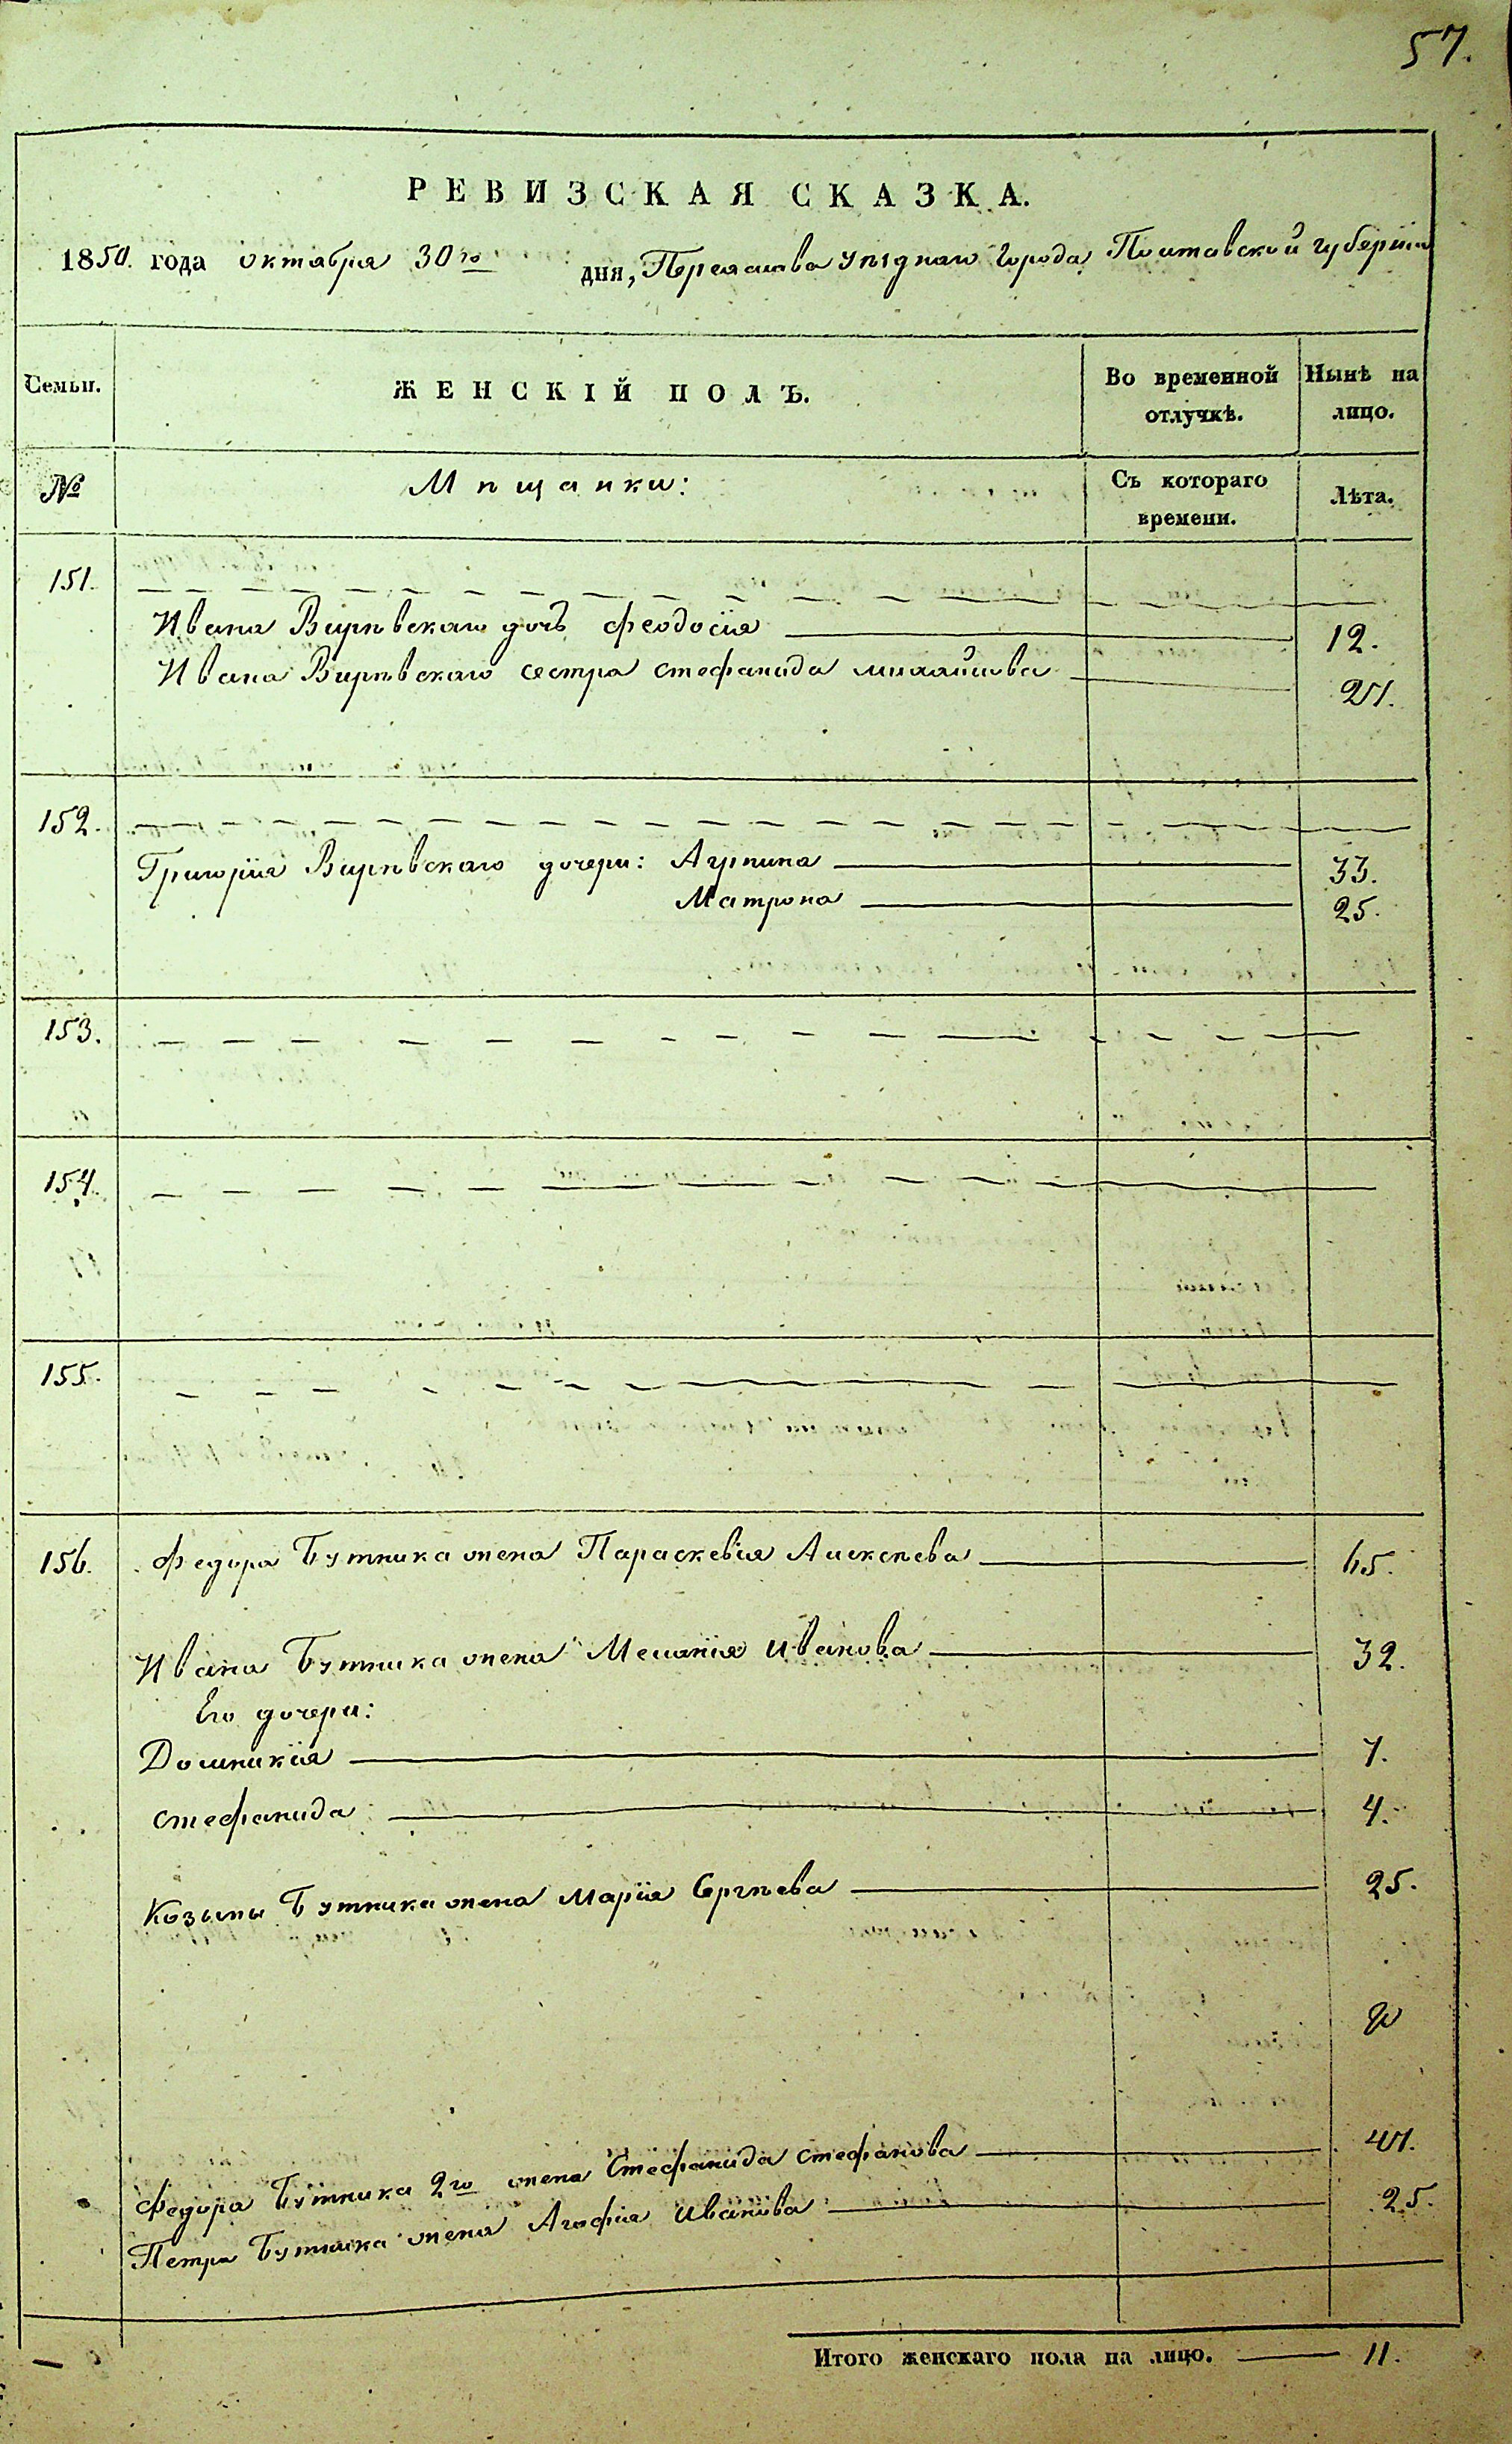 57.
РЕВИЗСКАЯ СКАЗКА.
1850. года октября 30го дня, Переяслава уѣзднаго города Полтавской губерніи
Семьи.
ЖЕНСКІЙ ПОЛЪ.
Во временной отлучкѣ.
Нынѣ на лицо.
№
Мѣщанки:
Съ котораго времени.
Лѣта.
151.
Ивана Вирѣвскаго дочь Феодосія 12.
Ивана Вирѣвскаго сестра Стефанида Михайлова 21.
152.
Григорія Вирѣвскаго дочери: Агрипина 33.
Матрона 25.
153.
154.
155.
156. Федора Бутника жена Параскевія Алексѣева 65.
Ивана Бутника жена Меланія Иванова 32.
Его дочери:
Домникія 7.
Стефанида 4.
Козьмы Бутника жена Марія Сергѣева 25.
Федора Бутника 2го жена Стефанида Стефанова 41.
Петра Бутника жена Агафія Иванова 25.
Итого женскаго пола на лицо. 11.